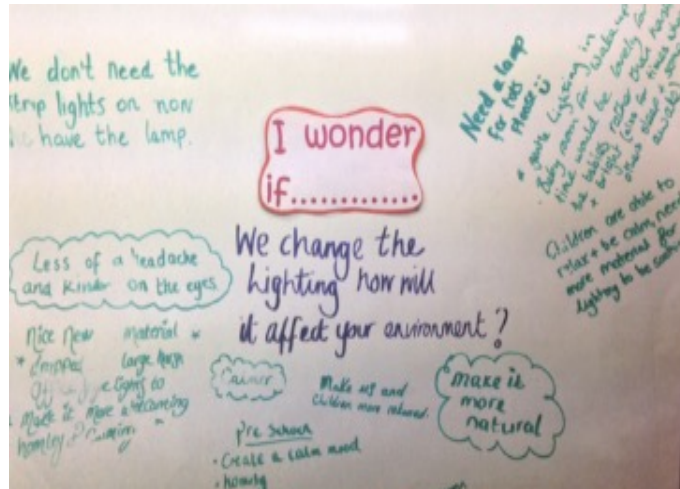 We don't need the
strip lights on now
have the lamp.
I wonder
if.............
We change the
lighting how will
it affect your environment?
Need a lamp
for tots
please
gentle lighting in
Baby room for wakeup
time would be lovely for
the babies rather than harsh
+ bright (also for times when
awake)
Children are able to
relax + be calm, need
more material for
lighting to be
Less of a headache
and kinder on the eyes
Nice New material
draped large
lights to
Make it more
homley
Calmer
Make us and
Children more relaxed.
make it
more
natural
Pre School
• Create a calm mood
• homely